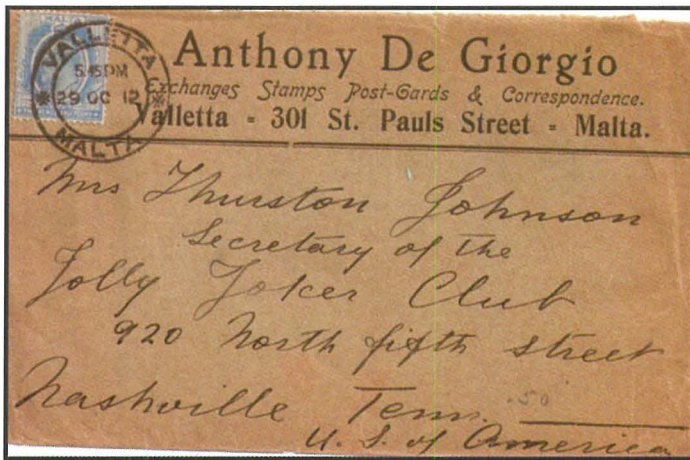 MALTA
VALLETTA
5.45PM
29 OC 12
MALTA
Anthony De Giorgio
Exchanges Stamps Post-Cards & Correspondence.
Valletta - 301 St. Pauls Street - Malta.
Mrs Thurston Johnson
Secretary of the
Jolly Joker Club
920 North fifth street
Nashville Tenn. .50
U. S. of America